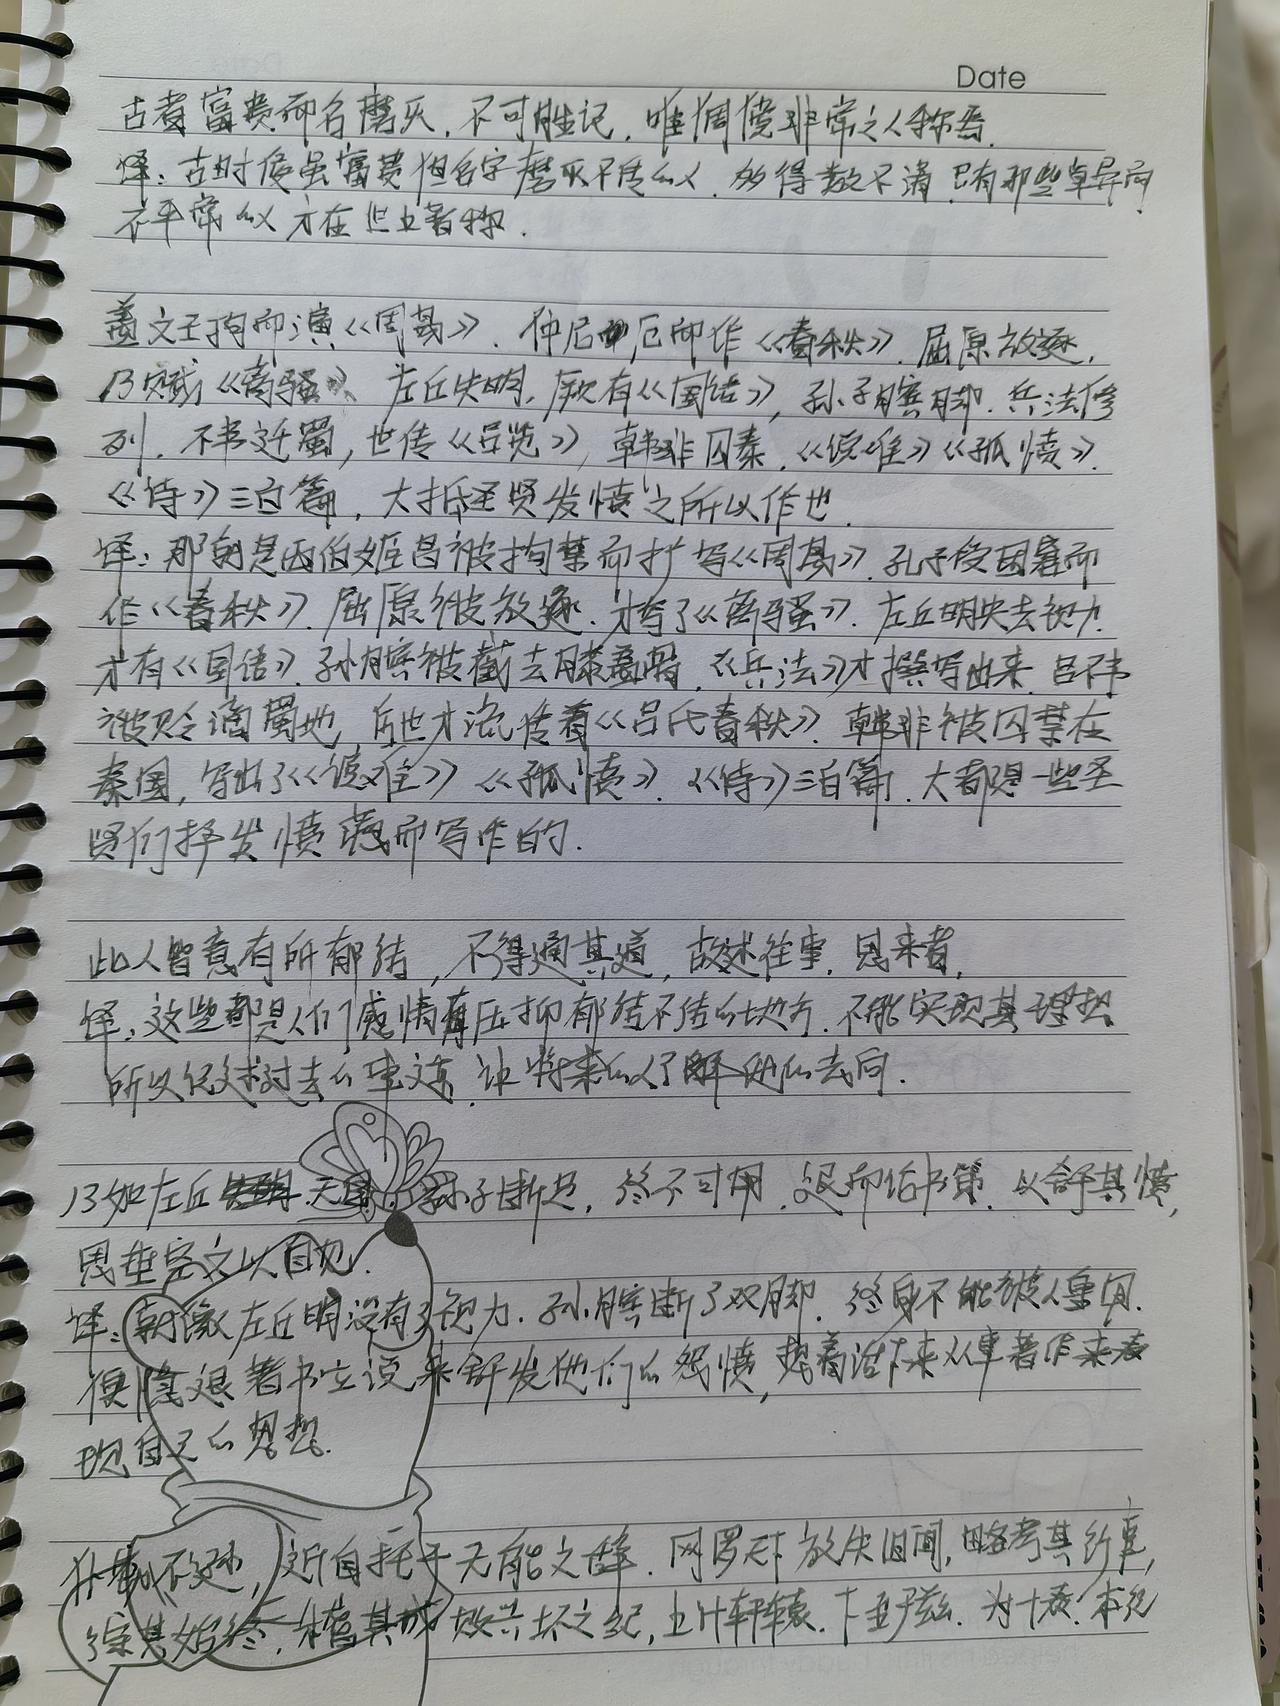 Date
古者富贵而名磨灭，不可胜记，唯倜傥非常之人称焉.
译：古时候虽富贵但名字磨灭不传的人，多得数不清，只有那些卓异而
不平常的人才在世上著称.
盖文王拘而演《周易》，仲尼厄而作《春秋》，屈原放逐，
乃赋《离骚》，左丘失明，厥有《国语》，孙子膑脚，兵法修
列，不韦迁蜀，世传《吕览》，韩非囚秦，《说难》《孤愤》.
《诗》三百篇，大抵圣贤发愤之所以作也.
译：那就是西伯姬昌被拘禁而扩写《周易》，孔子受困窘而
作《春秋》，屈原被放逐，才写了《离骚》，左丘明失去视力，
才有《国语》，孙膑被截去膝盖骨，《兵法》才撰写出来，吕不韦
被贬谪蜀地，后世才流传着《吕氏春秋》，韩非被囚禁在
秦国，写出了《说难》《孤愤》，《诗》三百篇，大都是一些圣
贤们抒发愤懑而写作的.
此人皆意有所郁结，不得通其道，故述往事，思来者，
译：这些都是人们感情有压抑郁结不结的地方，不能实现其理想
所以记述过去的事迹，让将来的人了解他的去向.
乃如左丘无目，孙子断足，终不可用，退而论书策，以舒其愤，
思垂空文以自见.
译：就像左丘明没有了视力，孙膑断了双脚，终身不能被人重用.
便隐退著书立说来舒发他们的怨愤，想着活下来从事著作来表
现自己的思想.
仆窃不逊，近自托于无能之辞，网罗天下放失旧闻，略考其行事，
综其始终，稽其成败兴坏之纪，上计轩辕，下至于兹，为十表，本纪